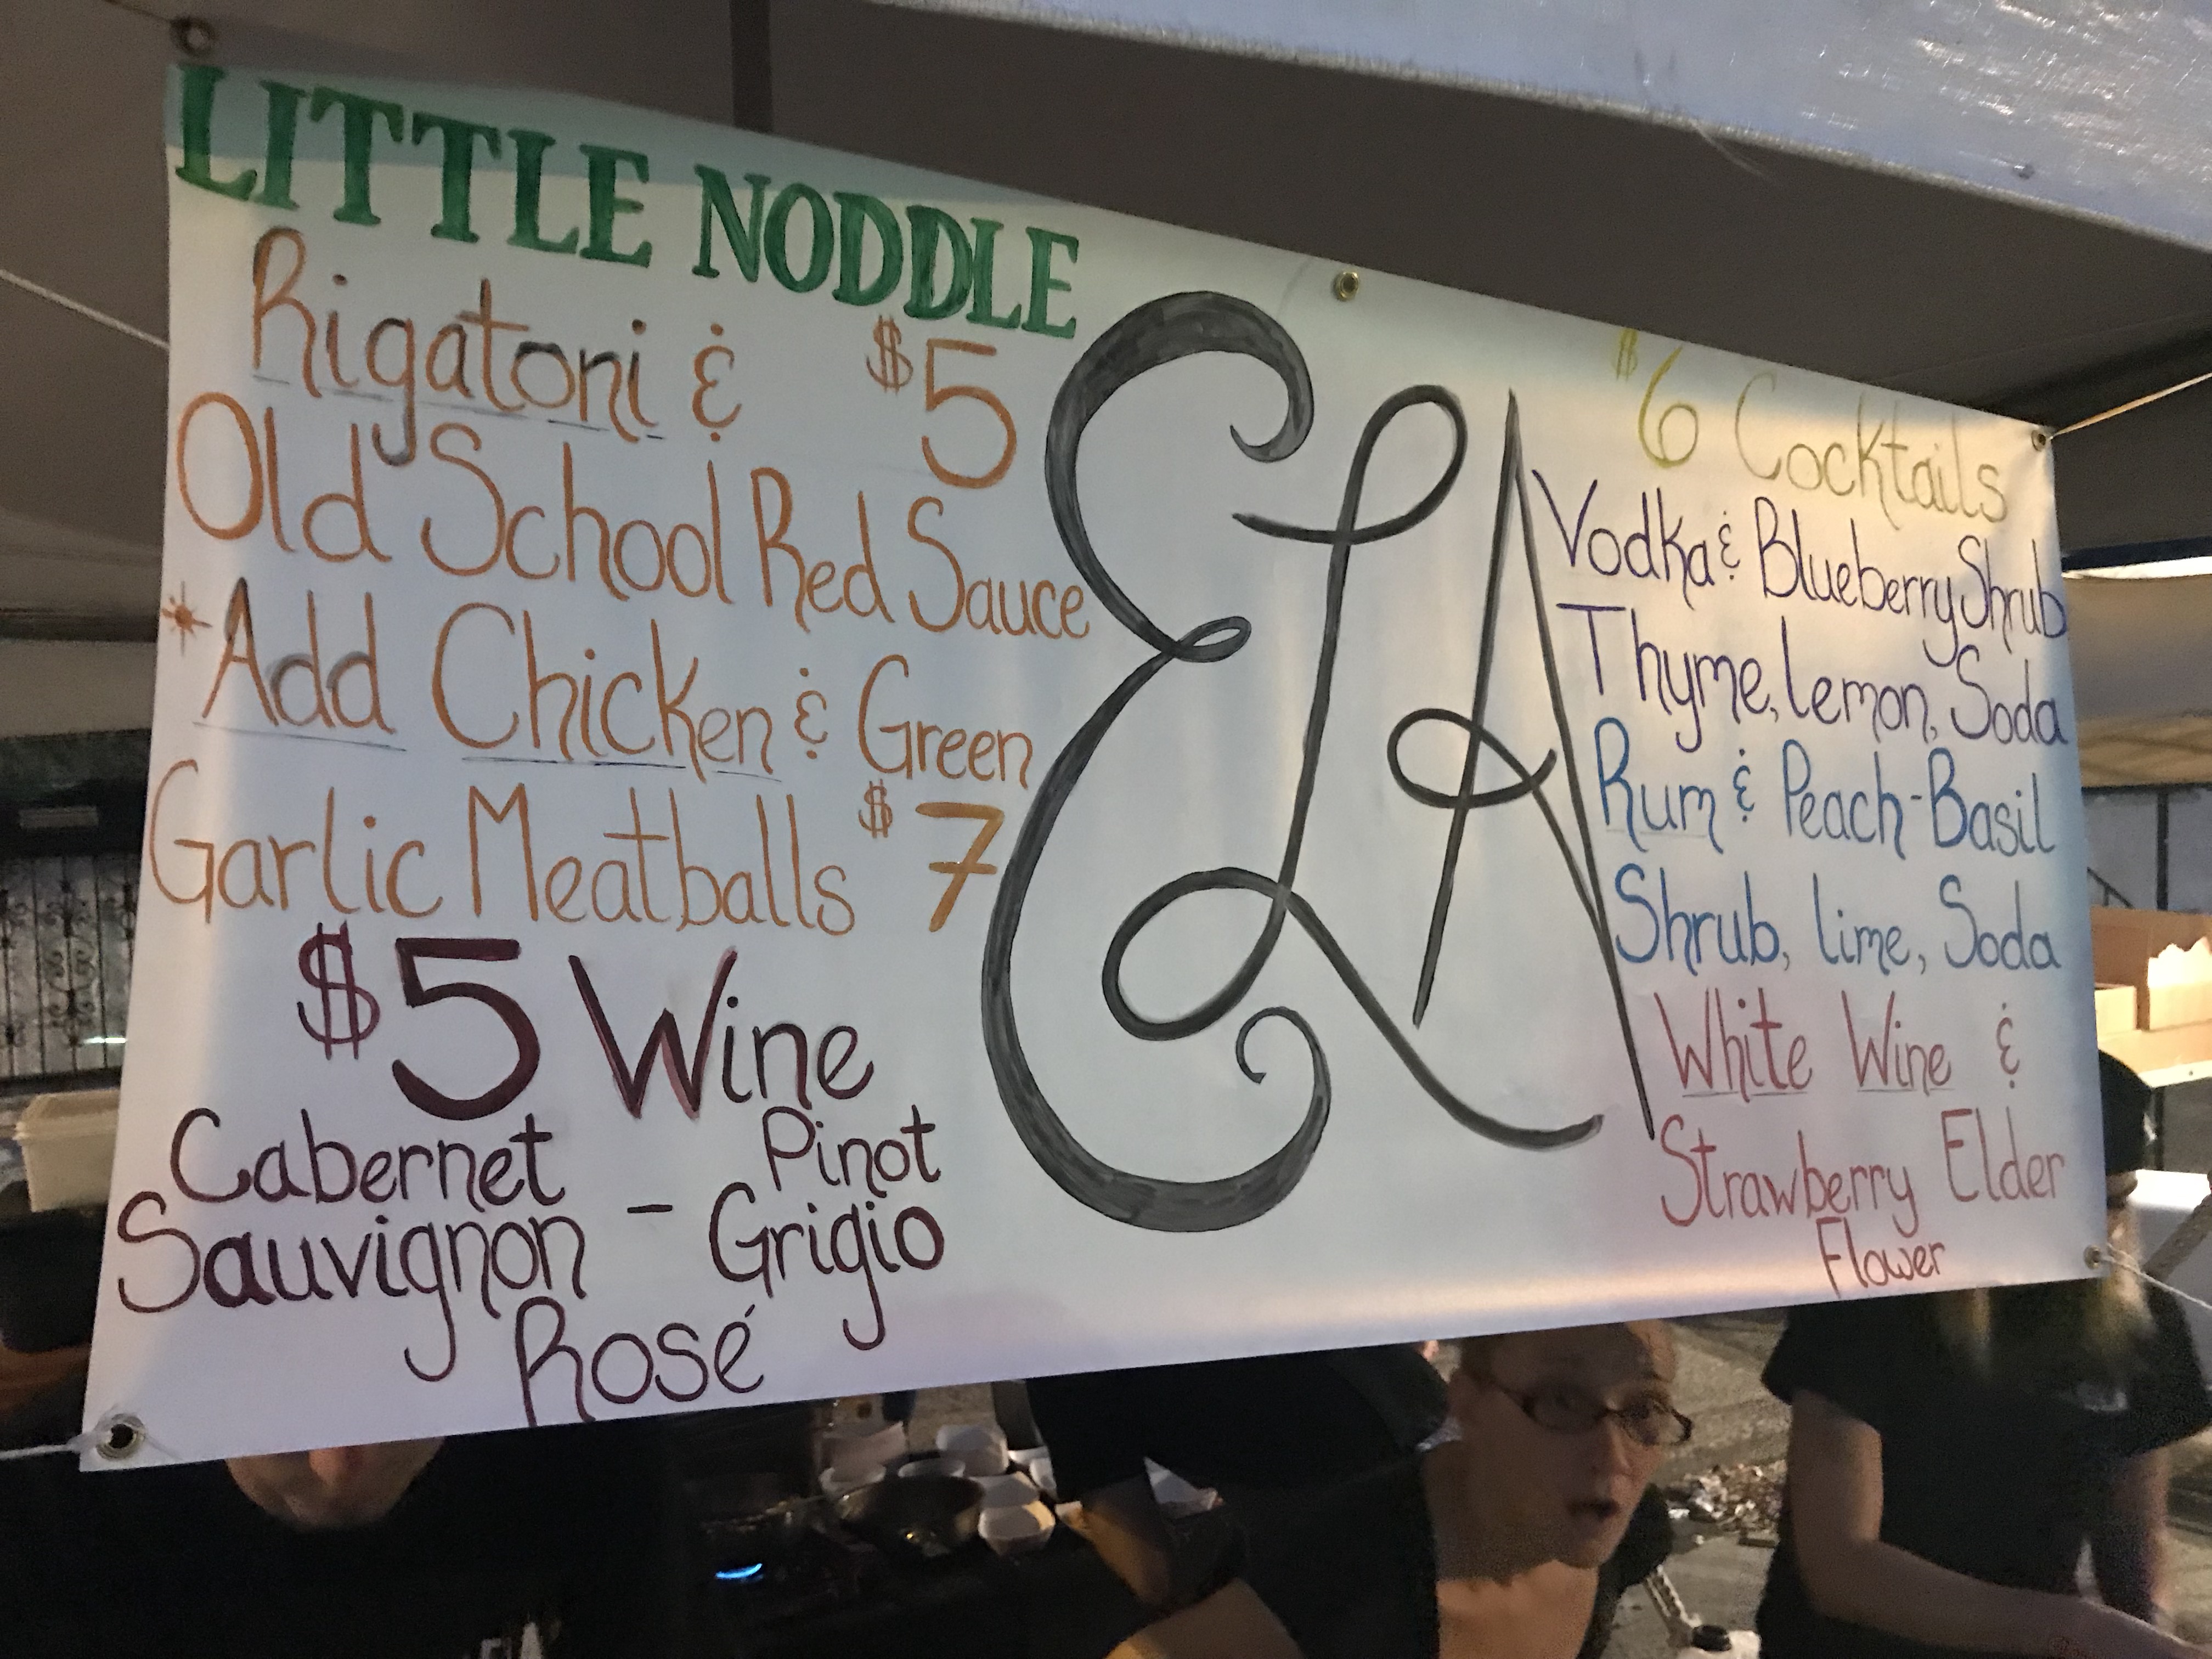 LITTLE NODDLE
Rigatoni & $5
Old School Red Sauce
*Add Chicken & Green
Garlic Meatballs $7
$5 Wine
Cabernet
Sauvignon -
Pinot
Grigio
Rosé
ELA
$6 Cocktails
Vodka & Blueberry Shrub
Thyme, lemon, Soda
Rum & Peach-Basil
Shrub, lime, Soda
White Wine &
Strawberry Elder
Flower